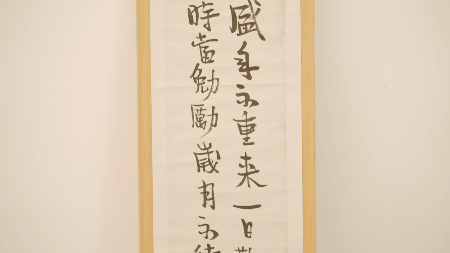 盛年不重来一日難
時當勉勵歲月不待